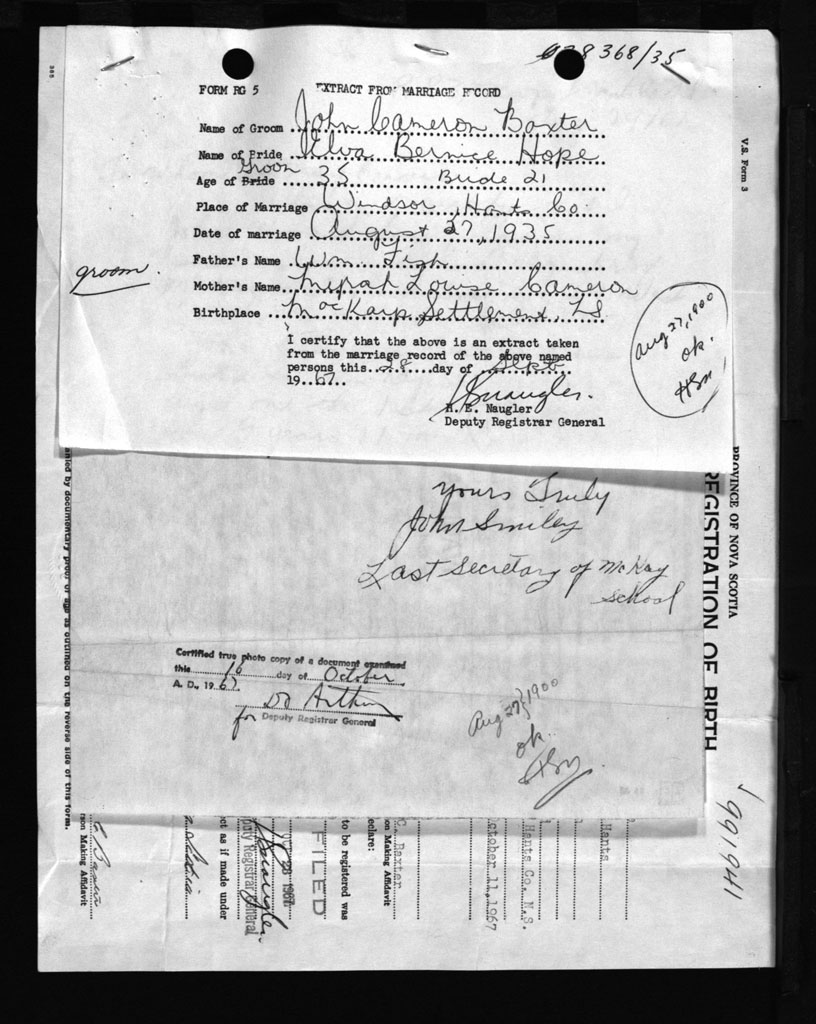 368/35
FORM RG 5 EXTRACT FROM MARRIAGE RECORD
Name of Groom John Cameron Baxter
Name of Bride Elva Bernice Hope
Groom
Age of Bride 35 Bride 21
Place of Marriage Windsor, Hants Co.
Date of marriage August 27, 1935
Father's Name Wm.
groom.
Mother's Name Louise Cameron
Birthplace Settlement, NS
I certify that the above is an extract taken
from the marriage record of the above named
persons this 28 day of Sept
1967
H. E. Naugler
Deputy Registrar General
Aug 27, 1900
ok.
HBM
V.S. Form 3
PROVINCE OF NOVA SCOTIA
REGISTRATION OF BIRTH
991941
Yours Truly
John Smiley
Last Secretary of McKay
School
Certified true photo copy of a document examined
this 16 day of October
A. D., 1967
for Deputy Registrar General
Aug 27, 1900
ok.
by documentary proof of age as outlined on the reverse side of this form.
Hants
Hants Co. N.S.
October 11, 1967
C. Baxter
on Making Affidavit
eclare:
to be registered was
FILED
28 1967
puty Registrar General
ct as if made under
rson Making Affidavit